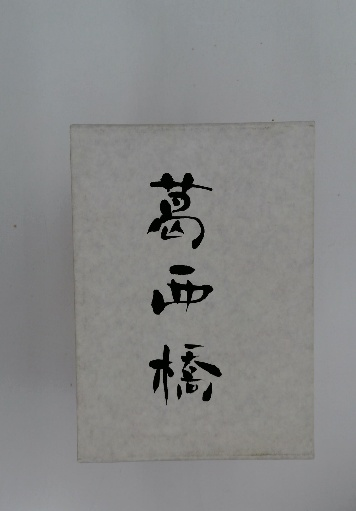 葛西橋